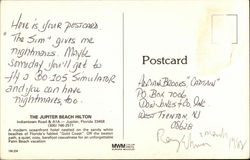 Here is your postcard.
The Sim* gives me
nightmares. Maybe
someday you'll get to
fly a BO 105 Simulator
and you can have
nightmares too.
THE JUPITER BEACH HILTON
Indiantown Road & A1A — Jupiter, Florida 33458
(305) 746-2511
A modern oceanfront hotel nestled on the sands white
beaches of Florida's fabled "Gold Coast". Off the beaten
path, a quiet, cozy, barefoot coexistence for an unforgettable
Palm Beach vacation.
Postcard
PO BOX 7006
DOW JONES & CO, INC
WEST TRENTON, NJ
08628
MWM